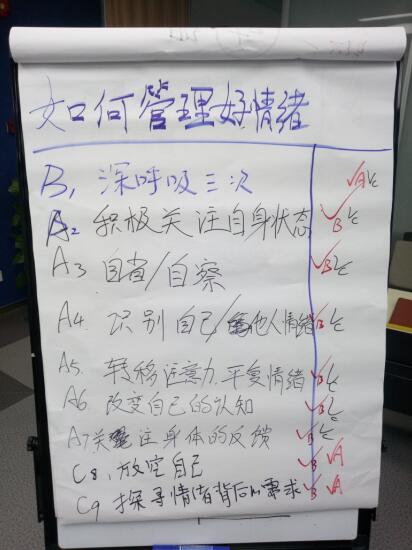 如何管理好情绪
B1 深呼吸三次 √A
A2 积极关注自身状态 √B
A3 自省/自察 √B
A4 识别自己/他人情绪 √B
A5. 转移注意力,平复情绪 √B
A6 改变自己的认知 √B
A7 关注身体的反馈 √B
C8、放空自己 √B √A
C9 探寻情绪背后的需求 √B √A